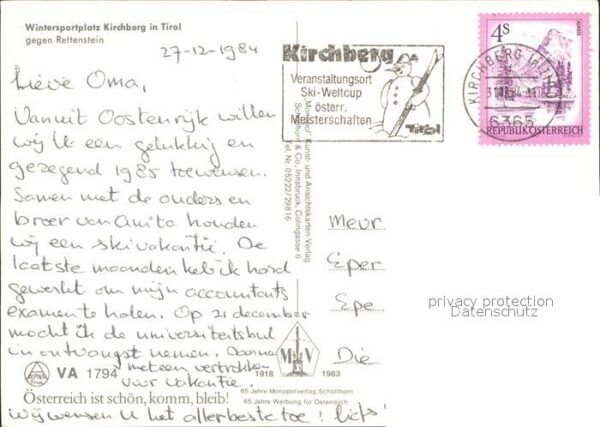 Wintersportplatz Kirchberg in Tirol
gegen Rettenstein
27-12-1984
Lieve Oma,
Vanuit Oostenrijk willen
wij U een gelukkig en
gezegend 1985 toewensen.
Samen met de ouders en
broer van Anita houden
wij een skivakantie. De
laatste maanden heb ik hard
gewerkt om mijn accountants
examen te halen. Op 21 december
mocht ik de universiteitsbul
in ontvangst nemen. Daarna
meteen vertrokken
voor vakantie.
Wij wensen U het allerbeste toe! liefs!
VA 1794
Österreich ist schön, komm, bleib!
1918 MV 1983
65 Jahre Monopolverlag Schöllhorn
65 Jahre Werbung für Österreich
"Monopol" Kunst- und Ansichtskarten-Verlag
Schöllhorn & Co., Innsbruck, Colingasse 6
Tel. Nr. 05222/29816
Kirchberg
Veranstaltungsort
Ski-Weltcup
österr.
Meisterschaften
Tirol
KIRCHBERG IN TIROL
6365
4S
ALMSEE
REPUBLIK ÖSTERREICH
Mevr
Eper
Epe
Die
privacy protection
Datenschutz